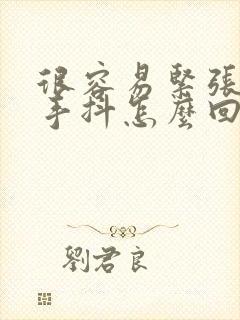 很容易緊張
手抖怎麼回
劉君良